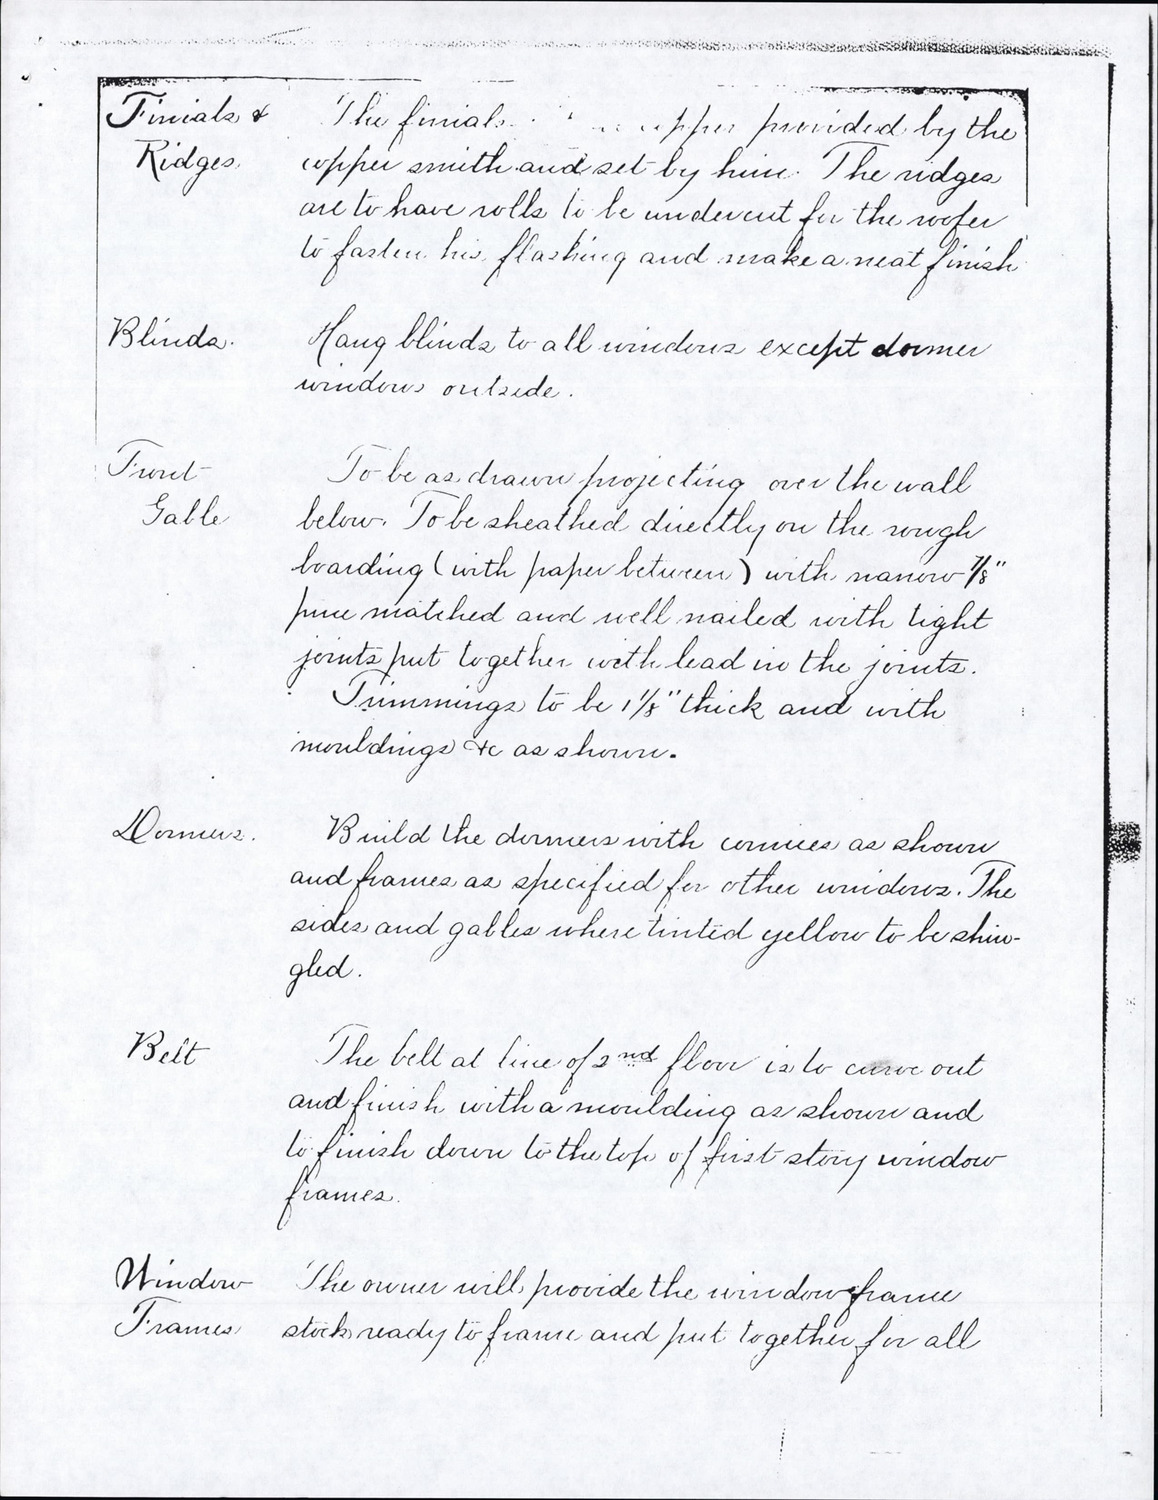 Finials & The finials copper provided by the
Ridges. copper smith and set by him. The ridges
are to have rolls to be undercut for the roofer
to fasten his flashing and make a neat finish
Blinds. Hang blinds to all windows except dormer
windows outside.
Front To be as drawn projecting over the wall
Gable below. To be sheathed directly on the rough
boarding (with paper between) with narrow 7/8"
pine matched and well nailed with tight
joints put together with lead in the joints.
Trimmings to be 1 1/8" thick and with
mouldings &c as shown.
Dormers. Build the dormers with cornices as shown
and frames as specified for other windows. The
sides and gables where tinted yellow to be shin-
gled.
Belt The belt at line of 2nd floor is to curve out
and finish with a moulding as shown and
to finish down to the top of first story window
frames.
Window The owner will provide the window frame
Frames stock ready to frame and put together for all